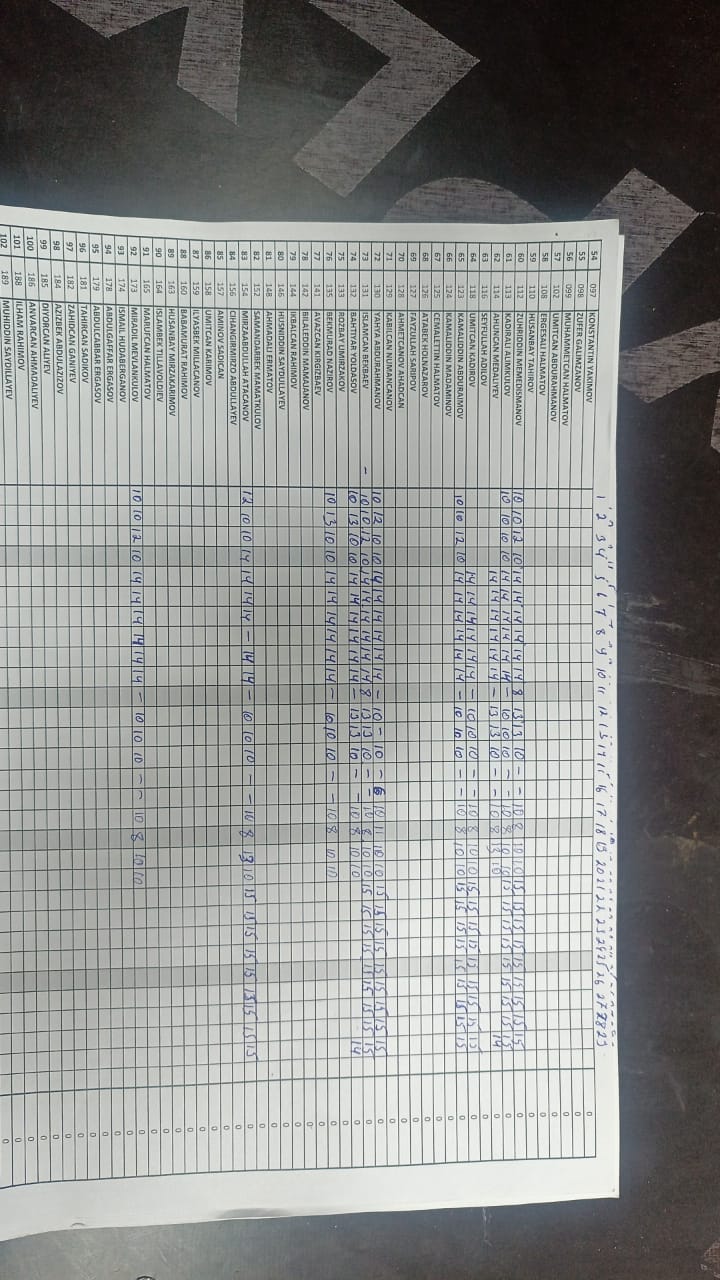 1 2 3 4 5 6 7 8 9 10 11 12 13 14 15 16 17 18 19 20 21 22 23 24 25 26 27 28 29
54 097 KONSTANTIN YAKIMOV 0
55 098 ZUFER GALIMZANOV 0
56 099 MUHAMMETCAN HALMATOV 0
57 102 UMITCAN ABDURAHMANOV 0
58 108 ERGESALI HALMATOV 0
59 110 HUSANBAY TAHIROV 0
60 112 ZUHRIDDIN MEMEDISMANOV 10 10 12 10 14 14 14 14 14 14 8 13 13 10 - - 10 8 10 10 15 15 15 15 15 15 15 15 15 0
61 113 KADIRALI ALIMKULOV 10 10 10 10 14 14 14 14 14 14 - 10 10 10 - - 10 8 10 10 15 15 15 15 15 15 15 15 15 0
62 114 AHUNCAN MEDALIYEV 14 14 14 14 14 14 - 13 13 10 - - 10 8 13 10 14 0
63 116 SEYFULLAH ADILOV 0
64 118 UMITCAN KADIROV 14 14 14 14 14 14 - 10 10 10 - - 10 8 10 10 15 15 15 15 15 15 15 15 15 0
65 123 KAMALIDDIN ABDURAIMOV 10 10 12 10 14 14 14 14 14 14 - 10 10 10 - - 10 8 10 10 15 15 15 15 15 15 15 15 15 0
66 124 KAMALIDDIN MADAMINOV 0
67 125 CEMALETTIN HALMATOV 0
68 126 ATABEK HOLNAZAROV 0
69 127 FAYZULLAH SARIPOV 0
70 128 AHMETCANOV AHADCAN 0
71 129 KABILCAN NUMANCANOV 0
72 130 YAHYA ABDURAHMANOV 10 12 10 10 14 14 14 14 14 14 - 10 - 10 - 6 10 11 10 10 15 15 15 15 15 15 15 15 15 0
73 131 ISLAMCAN BEKBAEV - 10 10 12 10 14 14 14 14 14 14 8 13 13 10 - - 10 8 10 10 15 15 15 15 15 15 15 15 15 0
74 132 BAHTIYAR YOLDASOV 10 13 10 10 14 14 14 14 14 14 - 13 13 10 - - 10 8 10 10 14 0
75 133 ROZBAY UMIRZAKOV 0
76 135 BEKMURAD NAZIROV 10 13 10 10 14 14 14 14 14 14 - 10 10 10 - - 10 8 10 10 0
77 141 AVAZCAN KIRGIZBAEV 0
78 142 BILALEDDIN MAMAJANOV 0
79 144 IKBALCAN RAHIMOV 0
80 146 HUSNIDDIN SAYDULLAYEV 0
81 148 AHMADALI ERMATOV 0
82 152 SAMANDARBEK MAMATKULOV 0
83 154 MIRZAABDULLAH ATACANOV 12 10 10 14 14 14 14 - 14 14 - 10 10 10 - - 10 8 13 10 15 15 15 15 15 13 15 15 15 0
84 156 CIHANGIRMIRZO ABDULLAYEV 0
85 157 AMINOV SADICAN 0
86 158 UMITCAN KARIMOV 0
87 159 ILYASBEK MILLACANOV 0
88 160 BABAMURAT RAHIMOV 0
89 163 HUSANBAY MIRZAKARIMOV 0
90 164 ISLAMBEK TILLAVOLDIEV 0
91 165 MARUFCAN HALMATOV 0
92 173 MIRADIL MEVLANKULOV 10 10 12 10 14 14 14 14 14 14 - 10 10 10 - - 10 8 10 10 0
93 174 ISMAIL HUDABERGANOV 0
94 178 ABDULGAFFAR ERGASOV 0
95 179 ABDULCABBAR ERGASOV 0
96 181 TAHIRCAN SADIKOV 0
97 182 ZAHIDCAN GANIYEV 0
98 184 AZIZBEK ABDULAZIZOV 0
99 185 DIYORCAN ALIYEV 0
100 186 ANVARCAN AHMADALIYEV 0
101 188 ILHAM RAHIMOV 0
102 189 MUHIDDIN SAYDILLAYEV 0